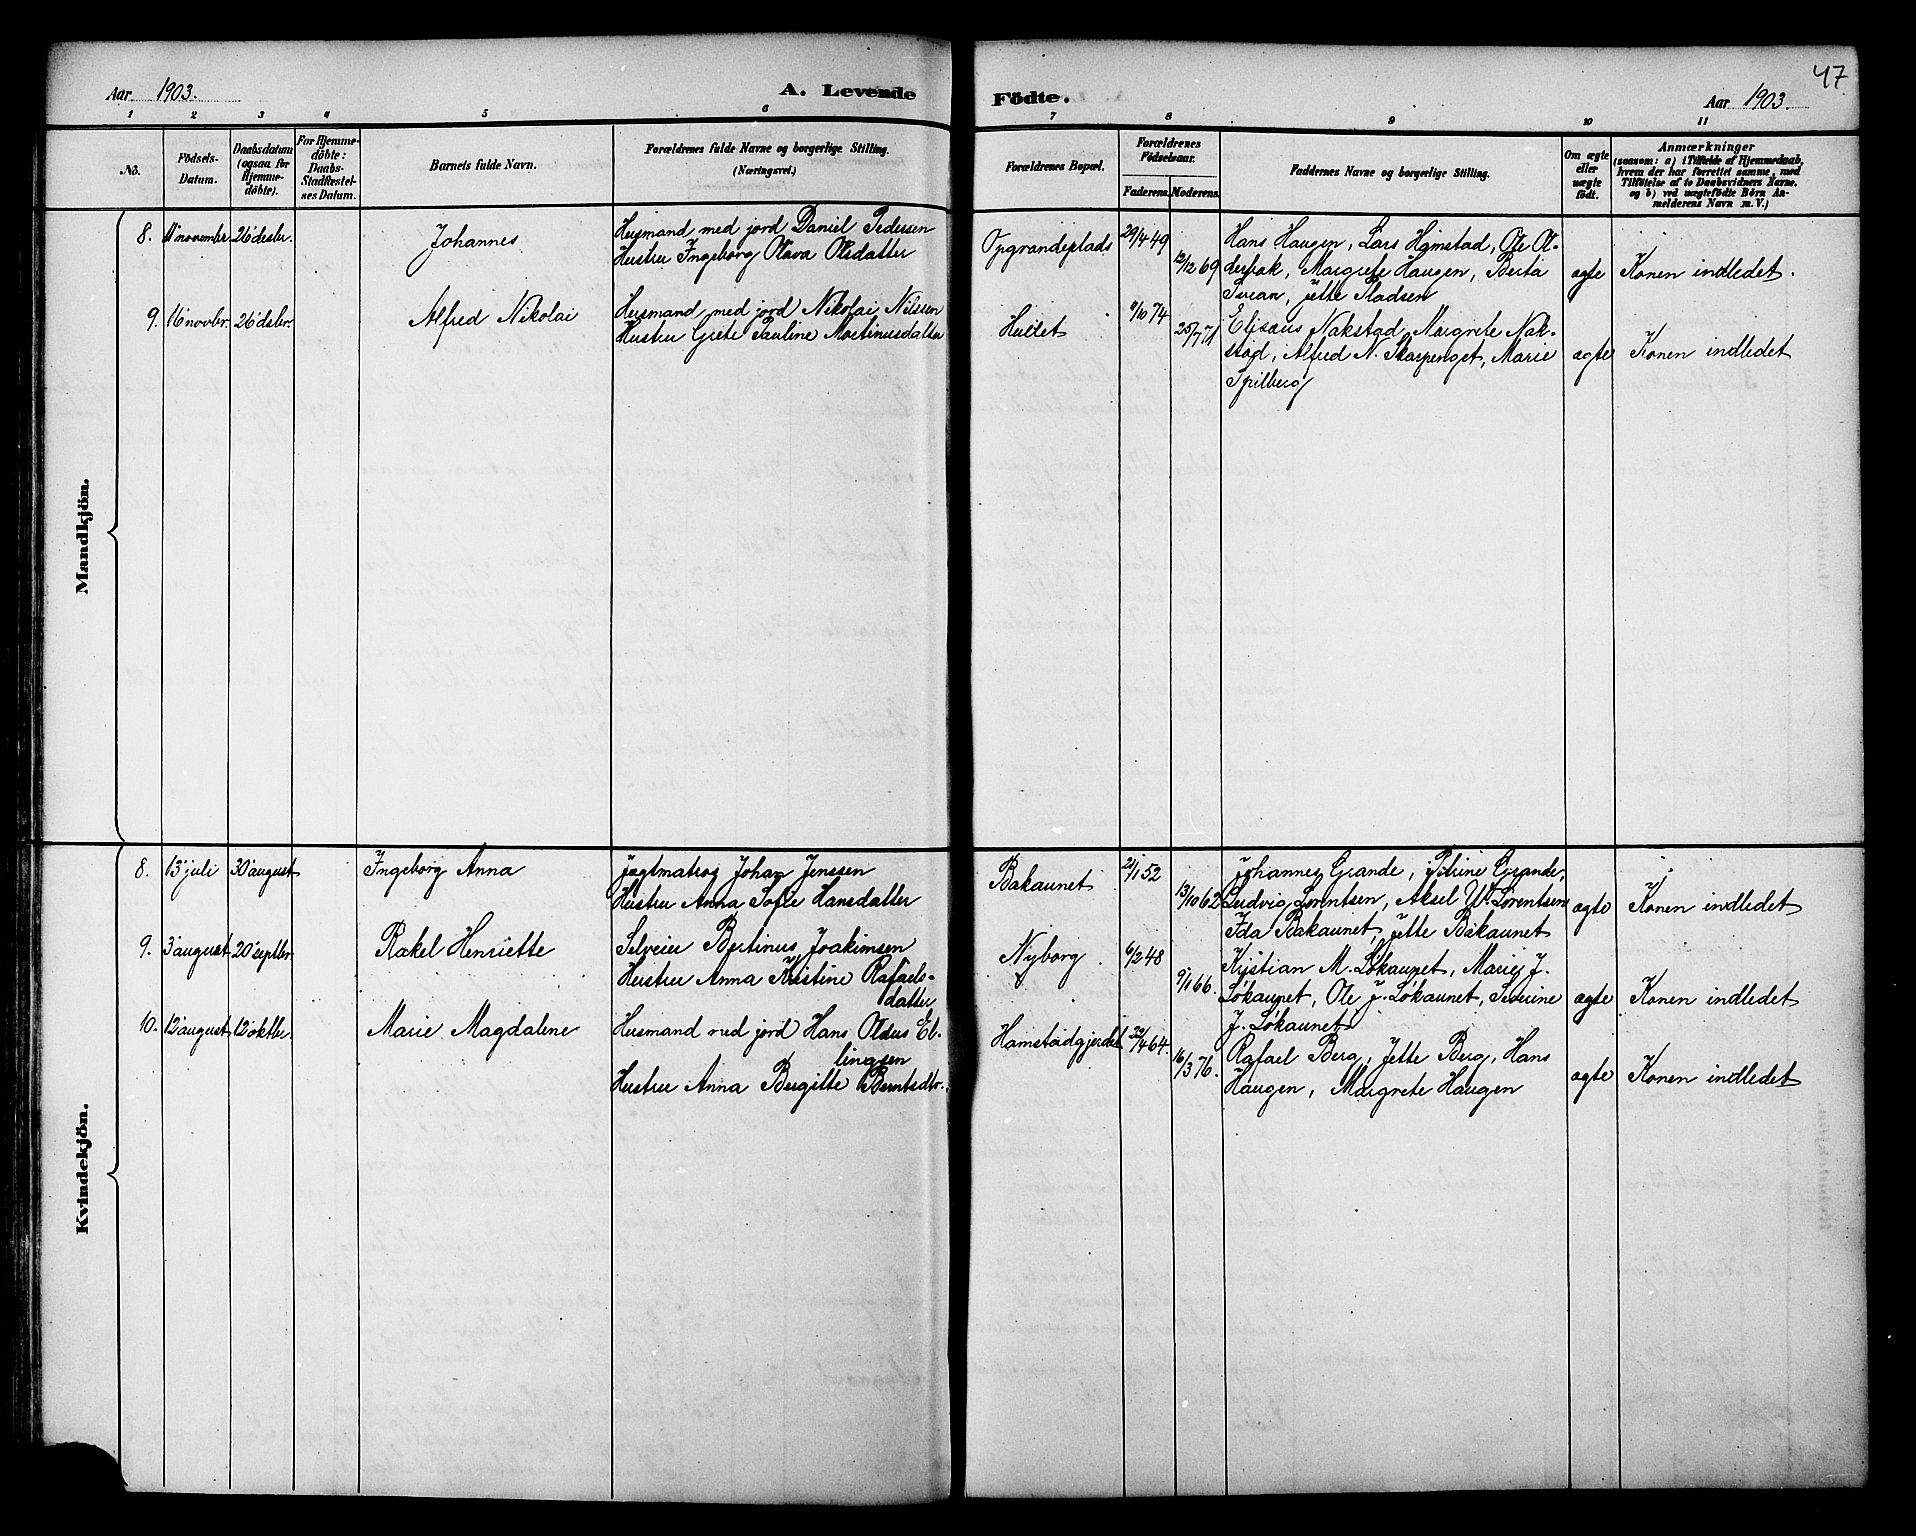 Aar 1903.
A. Levende
Födte.
Aar 1903.
47
1 2 3 4 5 6 7 8 9 10 11
No.
Födsels-
Datum.
Daabsdatum
(ogsaa for
Hjemme-
döbte).
For Hjemme-
döbte:
Daabs-
Stadfæstel-
ses Datum.
Barnets fulde Navn.
Forældrenes fulde Navne og borgerlige Stilling.
(Næringsvei.)
Forældrenes Bopæl.
Forældrenes
Födselsaar.
Faderens. Moderens.
Faddernes Navne og borgerlige Stilling.
Om ægte
eller
uægte
født.
Anmærkninger
(saasom: a) i Tilfælde af Hjemmedaab,
hvem der har forrettet samme, med
Tilføielse af to Daabsvidners Navne,
og b) ved uægtefødte Börn An-
melderens Navn m. V.)
Mandkjön.
8. 11' november 26' desbr. Johannes
Husmand med jord Daniel Pedersen
Hustru Ingeborg Olava Olsdatter
Opgrandeplads 29/4 49
12/12 69
Hans Haugen, Lars Hamstad, Ole Al-
derbak, Margrete Haugen, Berta
Svean, Jette Pladsen
ægte Konen indledet.
9. 16' novbr. 26' desbr. Alfred Nikolai
Husmand med jord Nikolai Nilssen
Hustru Grete Pauline Martinusdatter
Hullet 9/10 74
25/7 71
Elisæus Nakstad, Margrete Nak-
stad, Alfred N. Skarpenget, Marie
Spilberg
ægte Konen indledet
Kvindekjön.
8. 13' juli 30' august Ingeborg Anna
Jagtmatros Johan Jenssen
Hustru Anna Sofie Hansdatter
Bakaunet 21/1 52
13/10 62
Johannes Grande, Petrine Grande,
Ludvig Lorentsen, Aksel W. Lorentsen
Ida Bakaunet, Jette Bakaunet
ægte Konen indledet
9. 3' august 20' septbr Rakel Henriette
Selveier Bertinus Joakimsen
Hustru Anna Kristine Rafaels-
datter
Nyborg 6/2 48
9/1 66.
Kristian M. Løkaunet, Marie J.
Løkaunet, Ole J. Løkaunet, Severine
J. Løkaunet
ægte Konen indledet
10. 12' august 12' oktbr. Marie Magdalene
Husmand med jord Hans Oldus El-
lingsen
Hustru Anna Bergitte Berntsdtr.
Hamstadgjerdet 22/4 64.
16/3 76.
Rafael Berg, Jette Berg, Hans
Haugen, Margrete Haugen
ægte Konen indledet